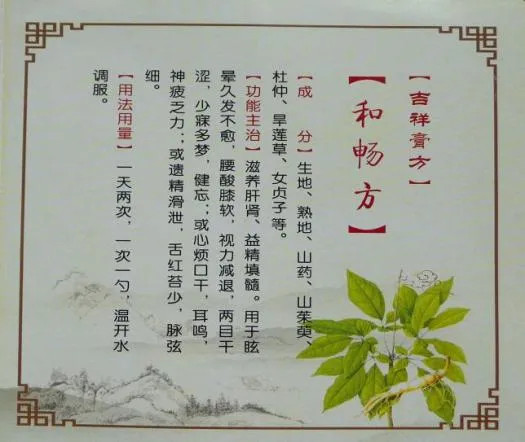 【吉祥膏方】
【和畅方】
【成 分】生地、熟地、山药、山茱萸、
杜仲、旱莲草、女贞子等。
【功能主治】滋养肝肾、益精填髓。用于眩
晕久发不愈，腰酸膝软，视力减退，两目干
涩，少寐多梦，健忘；或心烦口干，耳鸣，
神疲乏力；或遗精滑泄，舌红苔少，脉弦
细。
【用法用量】一天两次，一次一勺，温开水
调服。